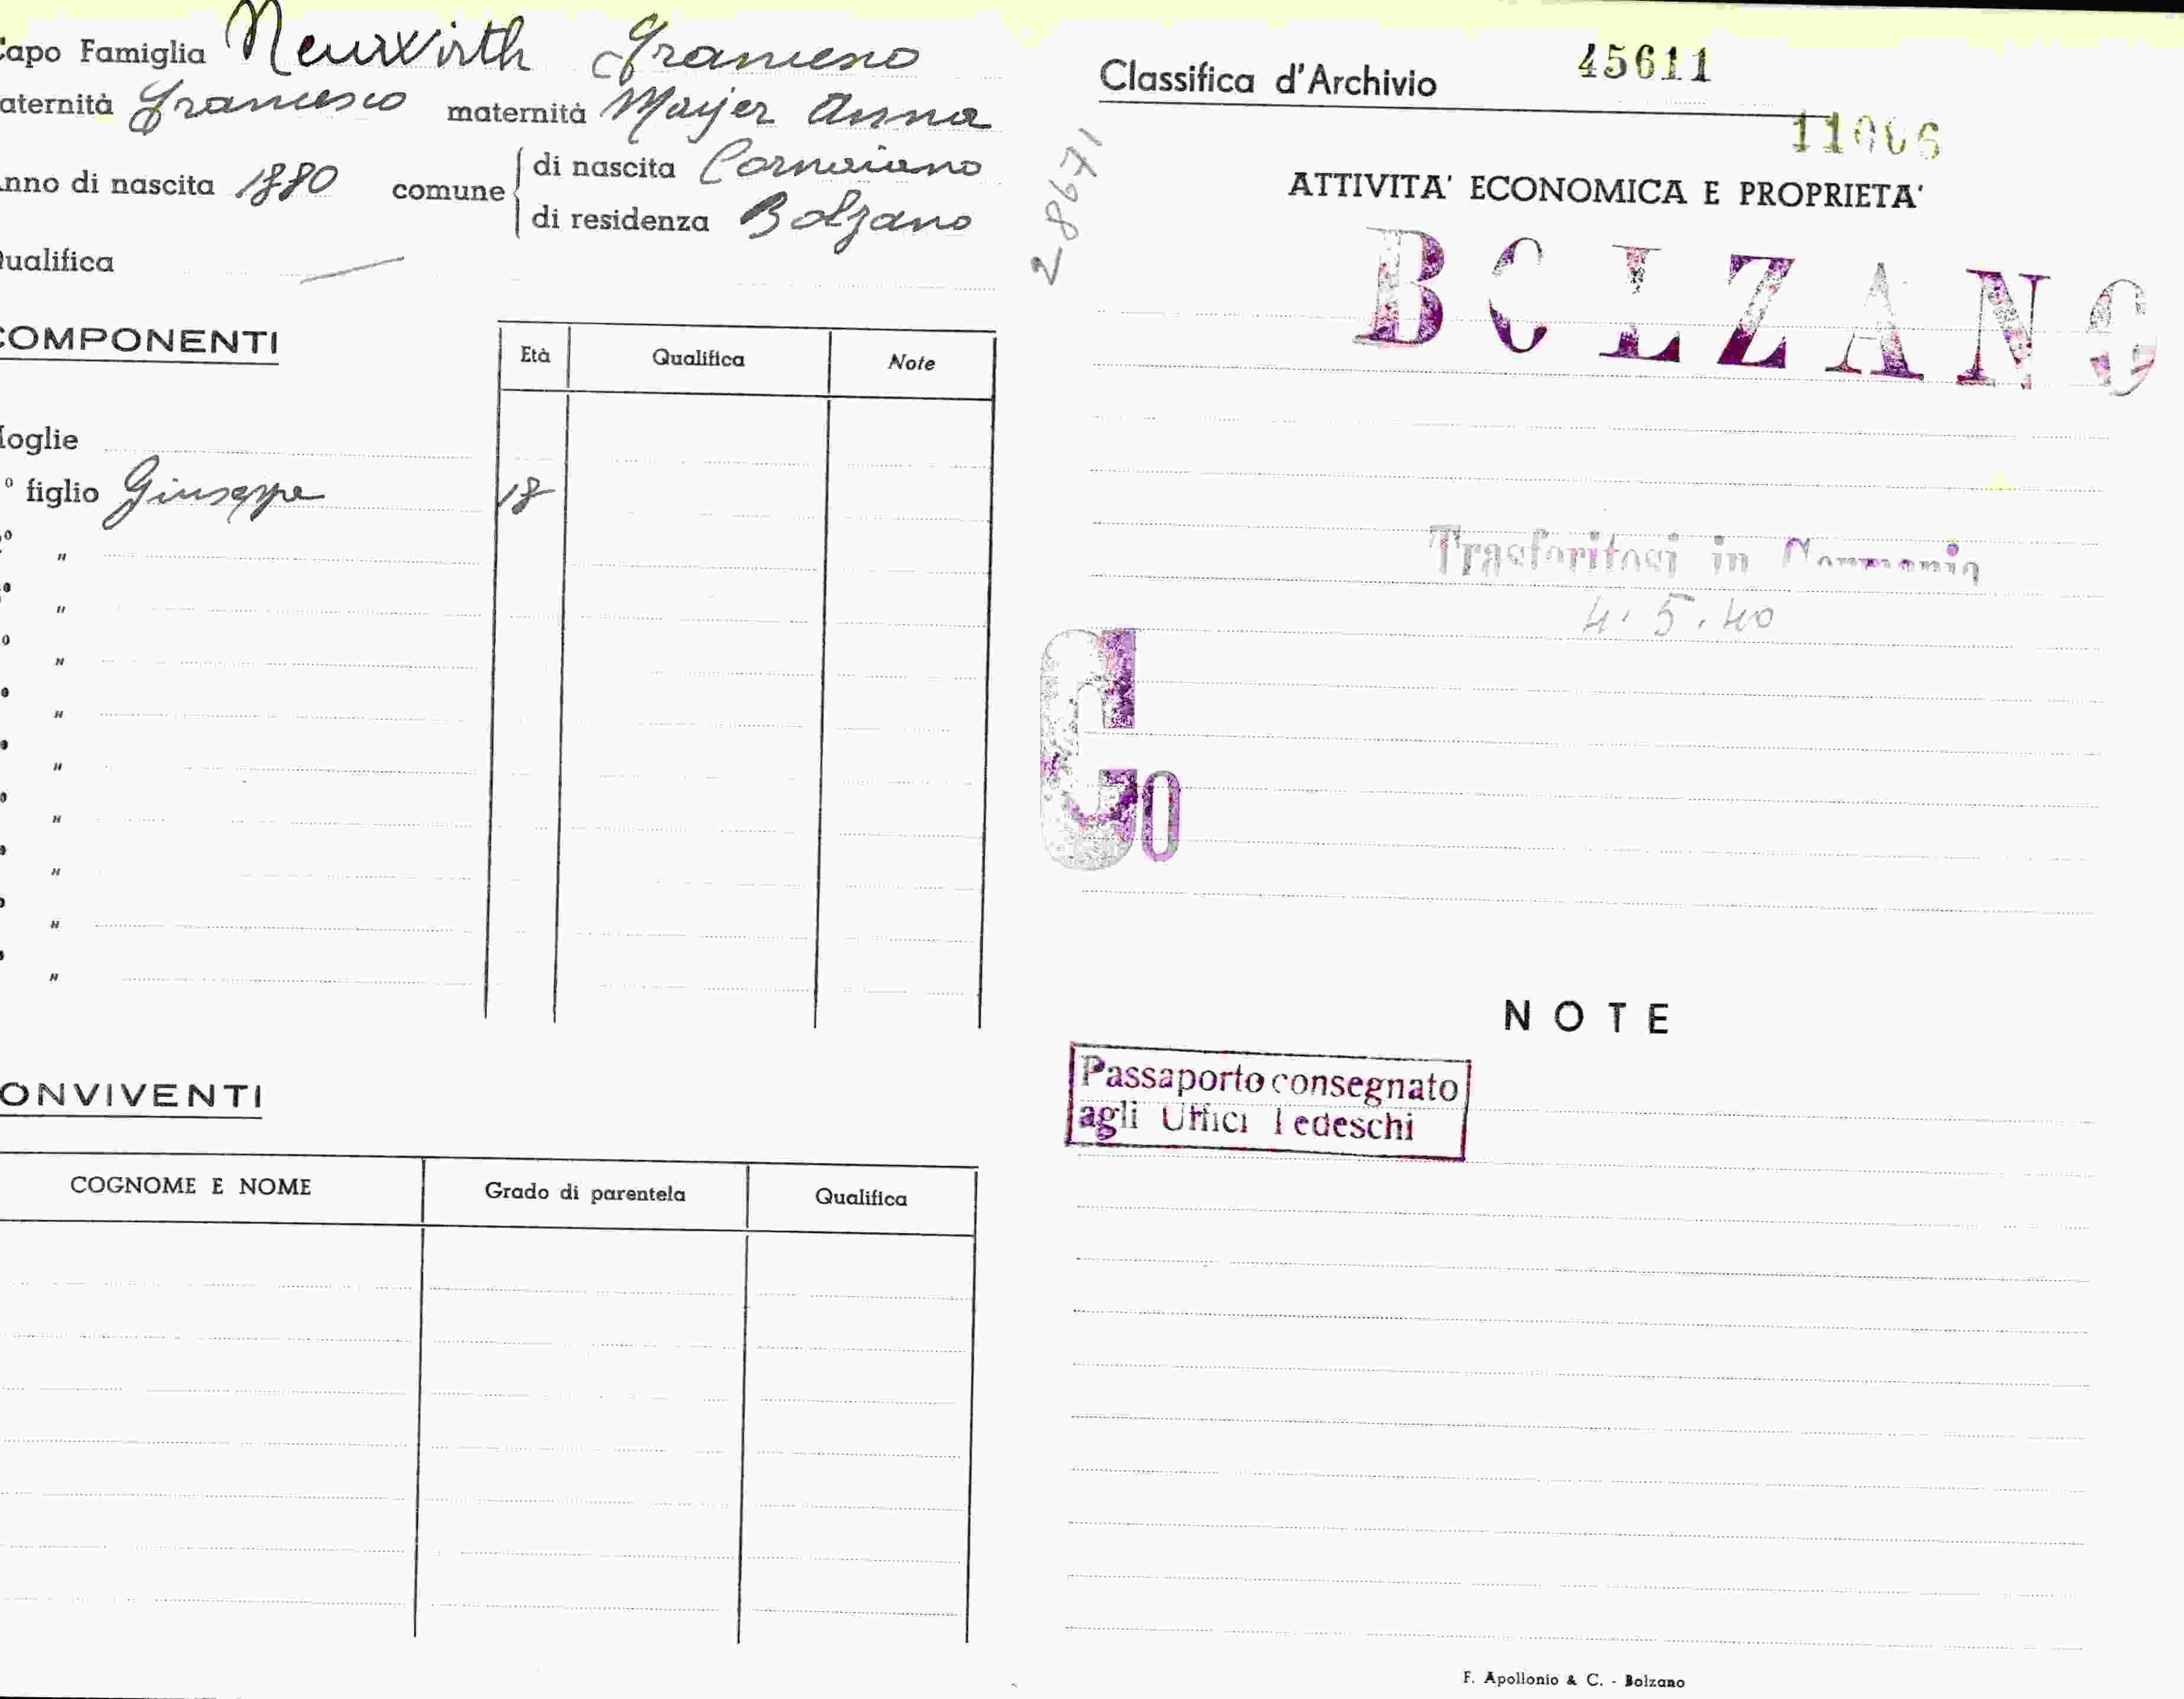 apo Famiglia Neuwirth Francesco
aternità Francesco maternità Mayer Anna
nno di nascita 1880 comune di nascita Cornaiano
di residenza Bolzano
ualifica —
COMPONENTI
Età Qualifica Note
oglie
° figlio Giuseppe 18
° "
° "
° "
° "
° "
° "
° "
° "
° "
ONVIVENTI
COGNOME E NOME Grado di parentela Qualifica
Classifica d'Archivio 45611
28671
ATTIVITA' ECONOMICA E PROPRIETA'
BOLZANO
Trasferitosi in Germania
4.5.40
G0
NOTE
Passaporto consegnato
agli Uffici Tedeschi
F. Apollonio & C. - Bolzano